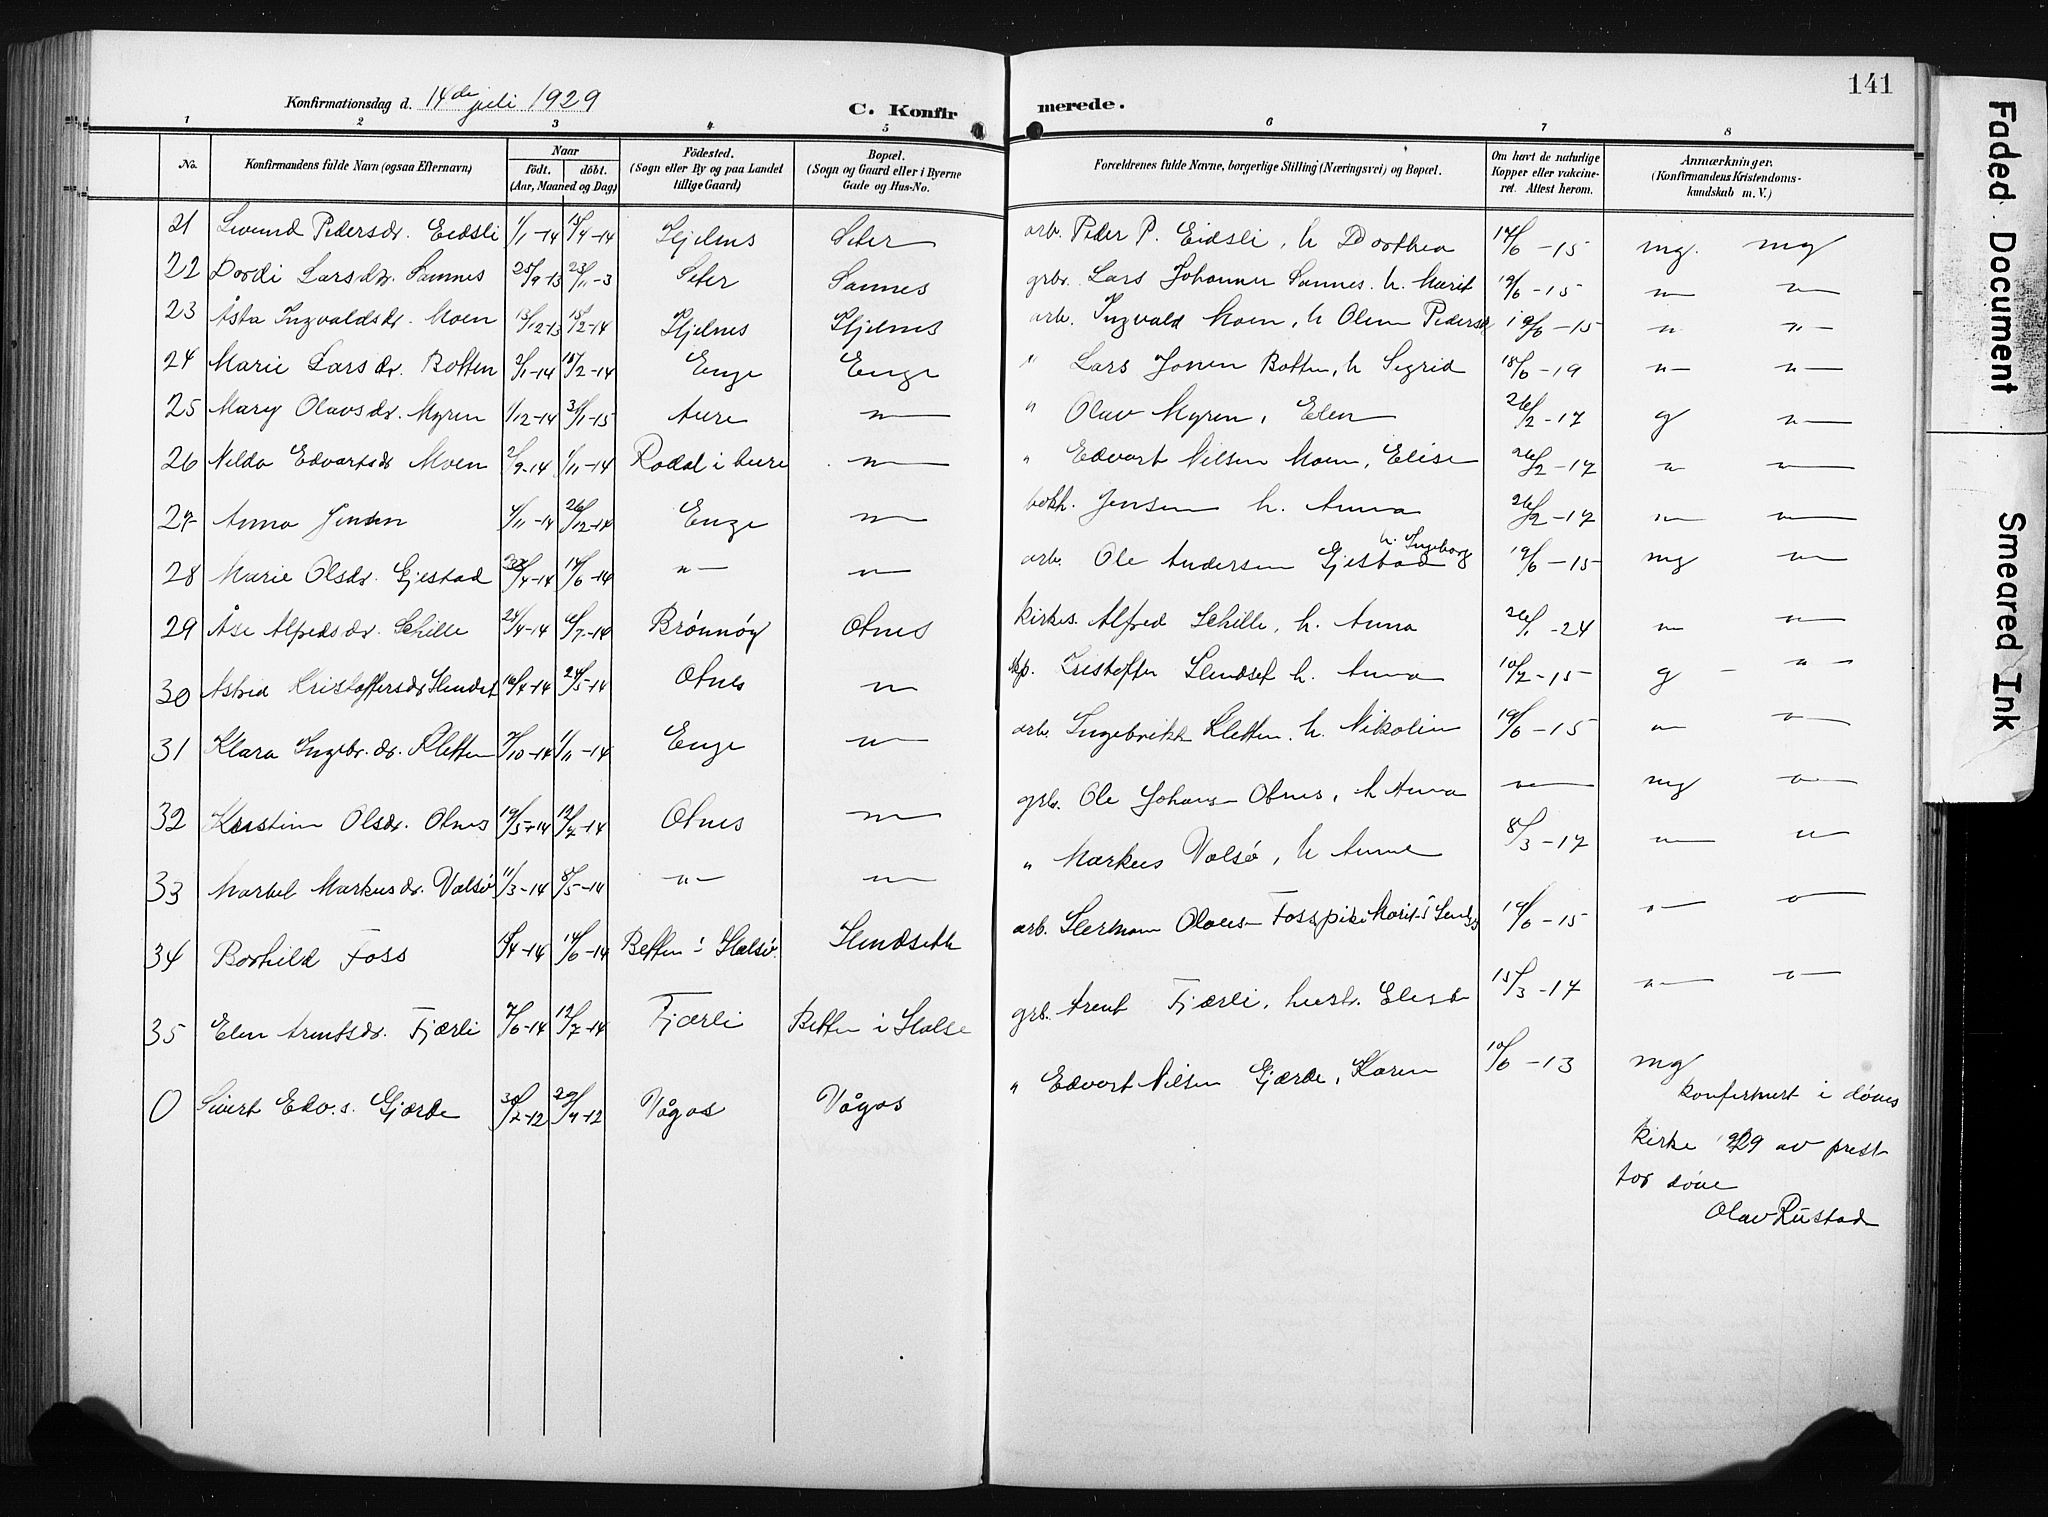 141
Konfirmationsdag d. 14de juli 1929
C. Konfirmerede.
1 2 3 4 5 6 7 8
No. | Konfirmandens fulde Navn (ogsaa Efternavn) | Naar født. døbt. (Aar, Maaned og Dag) | Fødested. (Sogn eller By og paa Landet tillige Gaard) | Bopæl. (Sogn og Gaard eller i Byerne Gade og Hus-No. | Forældrenes fulde Navne, borgerlige Stilling (Næringsvei) og Bopæl. | Om havt de naturlige Kopper eller vakcineret. Attest herom. | Anmærkninger. (Konfirmandens Kristendomskundskab m. V.)
21 Pedersdr. Eidsli 1/1-14 13/4-14 Hjelnes Seter arb. Peder P. Eidsli, h Dorthea 17/6-15 mg. mg
22 Dordi Larsdr. Sannes 25/9-13 23/11-3 Seter Sannes grbr. Lars Johannes Sannes. h. Marit 19/6-15 " "
23 Åsta Ingvaldsdr. Moen 13/12-13 15/2-14 Hjelnes Hjelnes arb. Ingvald Moen, h Pedersdr 19/6-15 " "
24 Marie Larsdr. Botten 2/1-14 15/2-14 Enge Enge " Lars Jonsen Botten, h Sigrid 18/6-19 " "
25 Mary Olavsdr. Myren 1/12-14 31/1-15 Aure " " Olav Myren, Elen 26/2-17 g "
26 Nilda Edvartsdr Moen 2/9-14 1/11-14 Rodal i Aure " " Edvart Nilsen Moen, Elise 26/2-17 " "
27 Anna Jensen 4/11-14 26/12-14 Enge " bokh. Jensen h. Anna 26/2-17 " "
28 Marie Olsdr. Gjestad /4-14 14/6-14 " " arb. Ole Andersen Gjestad h. Ingeborg 19/6-15 mg "
29 Åse Alfredsdr. Schille 23/4-14 6/7-14 Brönnöy Otnes kirkes. Alfred Schille, h. Anna 26/1-24 " "
30 Astrid Kristoffersdr Slendset 16/4-14 24/5-14 Otnes " Kristoffer Slendset h. Anna 10/2-15 g "
31 Klara Ingebr.dr. Kletten 7/10-14 1/11-14 Enge " arb. Ingebrikt Kletten, h. Nikolin 19/6-15 " "
32 Kristine Olsdr. Otnes 19/5-14 12/7-14 Otnes " grb. Ole Johans- Otnes, h Anna " mg "
33 Markusdr. Valsö 11/3-14 8/5-14 " " " Markus Valsö, h Anne 8/3-17 " "
34 Borhild Foss /4-14 14/6-14 Betten i Halsö Slendseth arb. Herman Olaus- Foss, pike Marit 19/6-15 " "
35 Elen Arntsdr. Fjærli 7/6-14 12/7-14 Fjærli Betten i Halse grb. Arent Fjærli, hust. Elise 15/3-17 " "
0 Sivert Edv.s. Gjærde 30/2-12 29/4-12 Vågos Vågos " Edvart Nilsen Gjærde, Karen 10/6-13 mg
konfirmert i döves
kirke 1929 av prest
for döve
Olav Rustad
Faded Document
Smeared Ink